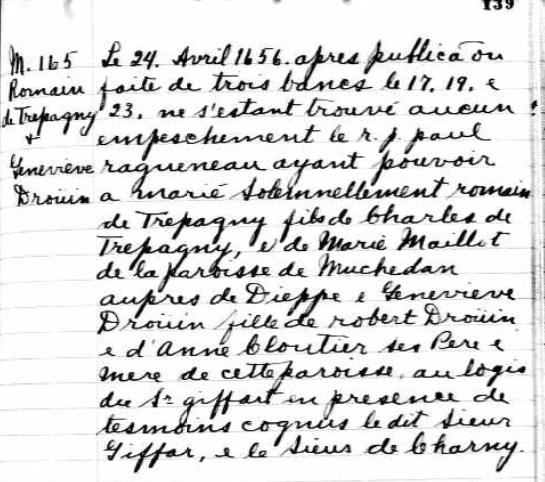 139
M. 165
Romain
de Trepagny
+
Genevieve
Droüin
Le 24. Avril 1656. apres publicaōn
faite de trois bancs le 17. 19. e
23. ne s'estant trouvé aucun
empeschement le r. p. paul
ragueneau ayant pouvoir
a marié Solemnellement romain
de Trepagny fils de Charles de
Trepagny, e de Marie Maillot
de la paroisse de Muchedan
aupres de Dieppe e Genevieve
Droüin fille de robert Droüin
e d'Anne Cloutier ses Pere e
mere de cette paroisse, au logis
du Sr giffart en presence de
tesmoins cognus le dit Sieur
Giffar, e le Sieur de Charny.